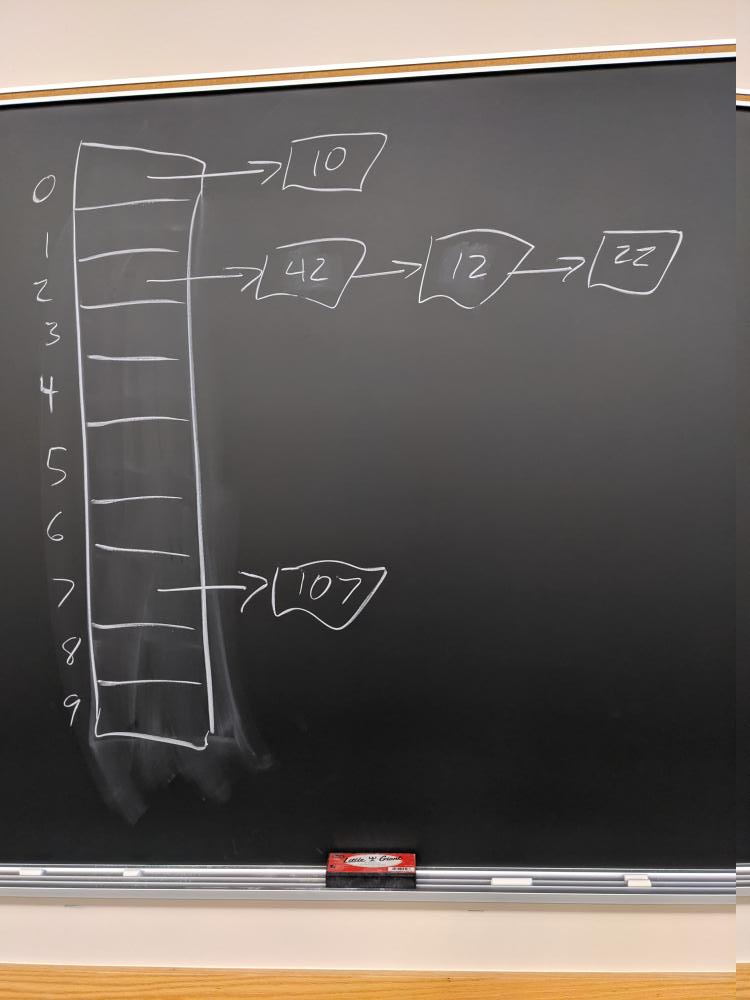 0 10
1
2 42 12 22
3
4
5
6
7 107
8
9
Little Giant